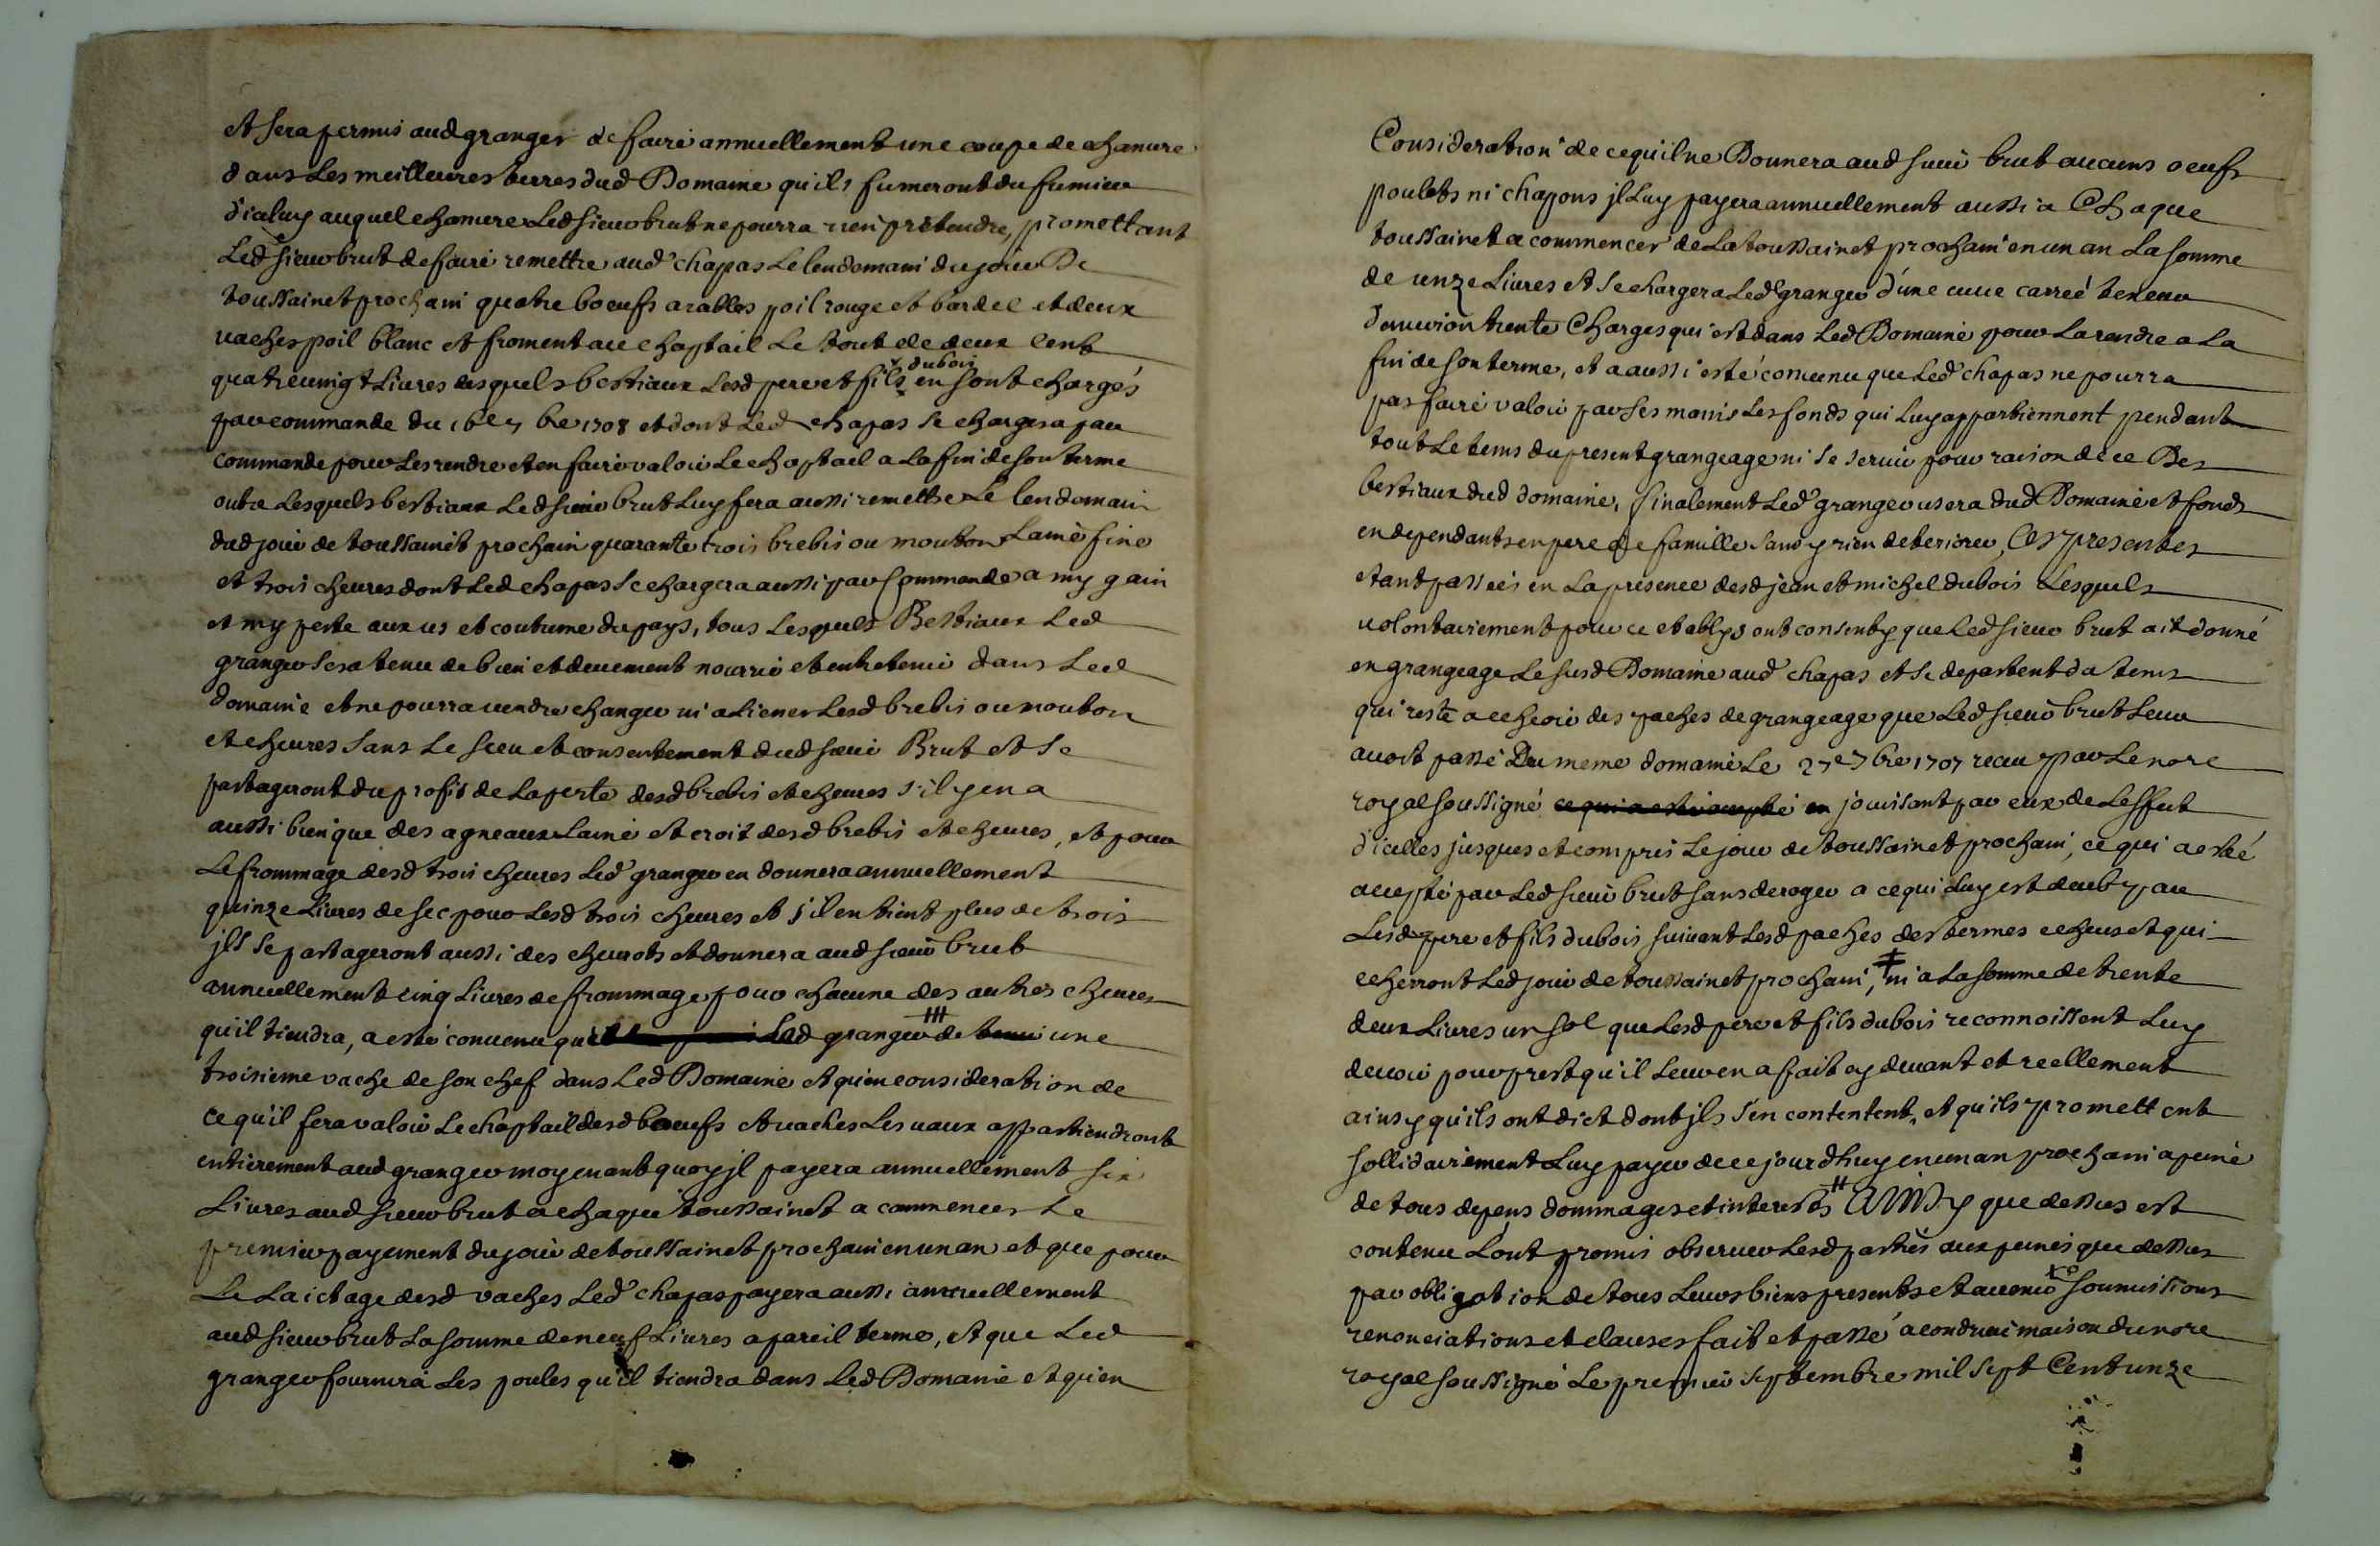 et sera permis aud granger de faire annuellement une coupe de chanure
dans Les meilleures terres dud Domaine qu'ils fumeront du fumier
dicaluy auquel chanure Led sieur brut ne pourra rien prétendre, promettant
Led sieur brut de faire remettre aud chapas Le lendemain du jour De
toussainct prochain quatre boeufs arables poil rouge et bardel et deux
vaches poil blanc et froment au chaptail Le tout de deux Cent
quatreuingt Liures lesquels bestiaux Lesd pere et fils dubois en sont chargés
par commande du 7bre 1708 et dont Led chapas se chargera par
commande pour Les rendre et en faire valoir Le chaptail a La fin de son terme
outre Lesquels bestiaux Led sieur brut Luy fera aussi remettre Le lendemain
dud jour de toussainct prochain quarante trois brebis ou mouton Laine fine
et trois cheures dont Led chapas se chargera aussi par Commande a my gain
et my perte aux us et coutume du pays, tous Lesquels Bestiaux Led
granger sera tenu de bien et deuement nourrir et entretenir dans Led
domaine et ne pourra vendre changer ni aliener Lesd brebis ou mouton
et cheures sans Le sceu et consentement dud sieur Brut et se
partageront du profit de La perte desd brebis et cheures s'il y en a
aussi bien que des agneaux Laine et croit desd brebis et cheures, et pour
Le frommage desd trois cheures Led granger en donnera annuellement
quinze Liures de sec pour Lesd trois cheures et s'il en tient plus de trois
jls se partageront aussi des cheurots et donnera aud sieur brut
annuellement cinq Liures de frommage pour chacune des autres cheures
qu'il tiendra, a esté conuenu que Led granger de tenir une
troisieme vache de son chef dans Led Domaine et qu'en consideration de
ce qu'il fera valoir Le chaptail desd boeufs et vaches Les vaux appartiendront
entierement aud granger moyenant quoy jl payera annuellement six
Liures aud sieur brut a chaque toussainct a commencer Le
premier payement du jour de toussainct prochain en un an et que pour
Le Laictage desd vaches Led chapas payera aussi annuellement
aud sieur brut La somme de neuf Liures a pareil terme, et que Led
granger fournira Les poules qu'il tiendra dans Led Domaine et qu'en
Consideration de ce qu'il ne Donnera aud sieur brut aucuns oeufs
poulets ni chapons jl Luy payera annuellement aussi a Chaque
toussainct a commencer de La toussainct prochain en un an La somme
de unze Liures et se chargera Led granger d'une cuue carreé teneur
d'enuiron trente Charges qui est dans Led Domaine pour La rendre a La
fin de son terme, et a aussi esté conuenu que Led chapas ne pourra
pas faire valoir par ses mains Les fonds qui Luy appartiennent pendant
tout Le tems du present grangeage ni se seruir pour raison de ce Des
bestiaux dud domaine, finalement Led granger usera dud Domaine et fonds
en dependants en pere de famille sans y rien deteriorer, Ces presentes
etant passeés en La presence desd jean et michel dubois Lesquels
volontairement pour ce etablys ont consenty que Led sieur brut ait donné
en grangeage Le susd Domaine aud chapas et se departent du tems
qui reste a echeoir des paches de grangeage que Led sieur brut Leur
auoit passé Du meme domaine Le 27e 7bre 1707 receu par Le nore
royal soussigné ce qui a esté accepté en jouissant par eux de L'effect
d'icelles jusques et compris Le jour de toussainct prochain, ce qui a esté
accepté par Led sieur brut sans deroger a ce qui Luy est deub par
Lesd pere et fils dubois suiuant Lesd paches des termes echeus et qui
echerront Led jour de toussainct prochain, ni a La somme de trente
deux Liures un sol que Lesd pere et fils dubois reconnoissent Luy
deuoir pour prest qu'il Leur en a fait cy deuant et reellement
ainsy qu'ils ont dict dont jls s'en contentent, et qu'ils promettent
sollidairement Luy payer de ce jourdhuy en un an prochain a peine
de tous depens dommages et interests Ainsy que dessus est
contenu L'ont promis obseruer Lesd parties aux peines que dessus
par obligation de tous Leurs biens presents et auenir soumissions
renonciations et clauses fait et passé a condrieu maison du nore
royal soussigné Le premier septembre mil sept Cent unze